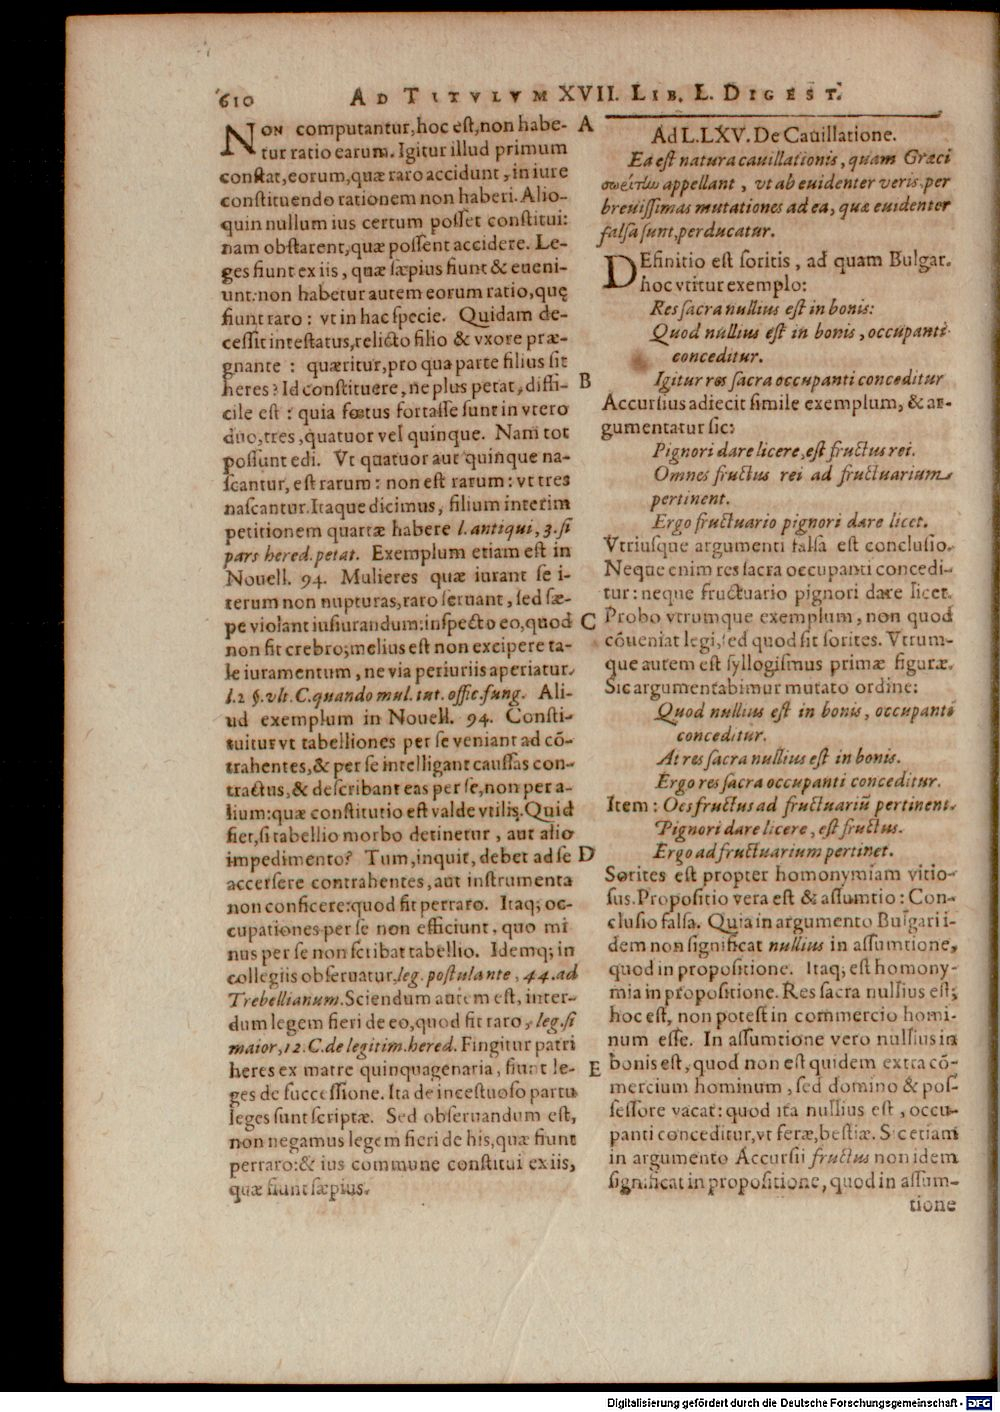 610 AD TITVLVM XVII. LIB. L. DIGEST.
NON computantur, hoc est, non habe-
tur ratio earum. Igitur illud primum
constat, eorum, quæ raro accidunt, in iure
constituendo rationem non haberi. Alio-
quin nullum ius certum posset constitui:
nam obstarent, quæ possent accidere. Le-
ges fiunt ex iis, quæ sæpius fiunt & eueni-
unt: non habetur autem eorum ratio, quę
fiunt raro: vt in hac specie. Quidam de-
cessit intestatus, relicto filio & vxore præ-
gnante: quæritur, pro qua parte filius sit
heres? Id constituere, ne plus petat, diffi-
cile est: quia fœtus fortasse sunt in vtero
duo, tres, quatuor vel quinque. Nam tot
possunt edi. Vt quatuor aut quinque na-
scantur, est rarum: non est rarum: vt tres
nascantur. Itaque dicimus, filium interim
petitionem quartæ habere l. antiqui, 3. si
pars hered. petat. Exemplum etiam est in
Nouell. 94. Mulieres quæ iurant se i-
terum non nupturas, raro seruant, sed sæ-
pe violant iusiurandum: inspecto eo, quod
non fit crebro; melius est non excipere ta-
le iuramentum, ne via periuriis aperiatur.
l.2 §. vlt. C. quando mul. tut. offic. fung. Ali-
ud exemplum in Nouell. 94. Consti-
tuitur vt tabelliones per se veniant ad cõ-
trahentes, & per se intelligant caussas con-
tractus, & describant eas per se, non per a-
lium: quæ constitutio est valde vtilis. Quid
fiet, si tabellio morbo detinetur, aut alio
impedimento? Tum, inquit, debet ad se
accersere contrahentes, aut instrumenta
non conficere: quod fit perraro. Itaq; oc-
cupationes per se non efficiunt, quo mi
nus per se non scribat tabellio. Idemq; in
collegiis obseruatur, leg. postulante, 44. ad
Trebellianum. Sciendum autem est, inter-
dum legem fieri de eo, quod fit raro, leg. si
maior, 12. C. de legitim. hered. Fingitur patri
heres ex matre quinquagenaria, fiunt le-
ges de successione. Ita de incestuoso partu
leges sunt scriptæ. Sed obseruandum est,
non negamus legem fieri de his, quæ fiunt
perraro: & ius commune constitui ex iis,
quæ fiunt sæpius.
A
B
C
D
E
Ad L. LXV. De Cauillatione.
Ea est natura cauillationis, quam Græci
σωρείτην appellant, vt ab euidenter veris, per
breuissimas mutationes ad ea, quæ euidenter
falsa sunt, perducatur.
DEfinitio est soritis, ad quam Bulgar.
hoc vtitur exemplo:
Res sacra nullius est in bonis:
Quod nullius est in bonis, occupanti
conceditur.
Igitur res sacra occupanti conceditur
Accursius adiecit simile exemplum, & ar-
gumentatur sic:
Pignori dare licere, est fructus rei.
Omnes fructus rei ad fructuarium
pertinent.
Ergo fructuario pignori dare licet.
Vtriusque argumenti falsa est conclusio.
Neque enim res sacra occupanti concedi-
tur: neque fructuario pignori dare licet.
Probo vtrumque exemplum, non quod
cõueniat legi, sed quod sit sorites. Vtrum-
que autem est syllogismus primæ figuræ.
Sic argumentabimur mutato ordine:
Quod nullius est in bonis, occupanti
conceditur.
At res sacra nullius est in bonis.
Ergo res sacra occupanti conceditur.
Item: Oes fructus ad fructuariũ pertinent.
Pignori dare licere, est fructus.
Ergo ad fructuarium pertinet.
Sorites est propter homonymiam vitio-
sus. Propositio vera est & assumtio: Con-
clusio falsa. Quia in argumento Bulgari i-
dem non significat nullius in assumtione,
quod in propositione. Itaq; est homony-
mia in propositione. Res sacra nullius est;
hoc est, non potest in commercio homi-
num esse. In assumtione vero nullius in
bonis est, quod non est quidem extra cõ-
mercium hominum, sed domino & pos-
sessore vacat: quod ita nullius est, occu-
panti conceditur, vt feræ, bestiæ. Sic etiam
in argumento Accursii fructus non idem
significat in propositione, quod in assum-
tione
Digitalisierung gefördert durch die Deutsche Forschungsgemeinschaft - DFG